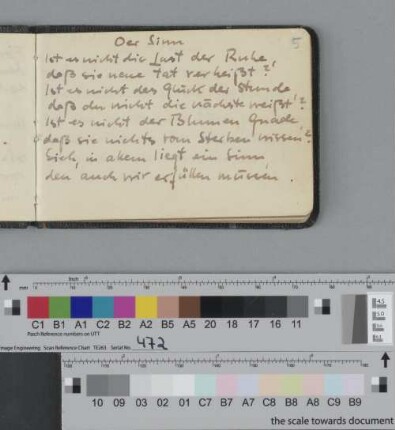 Der Sinn 5
Ist es nicht die Lust der Ruhe,
daß sie neue Tat verheißt?!
Ist es nicht das Glück der Stunde
daß du nicht die nächste weißt!?
Ist es nicht der Blumen Gnade
daß sie nichts vom Sterben wissen!?
Sieh, in allem liegt ein Sinn,
den auch wir erfüllen müssen.
mm
C1 B1 A1 C2 B2 A2 B5 A5 20 18 17 16 11
Patch Reference numbers on UTT
Image Engineering Scan Reference Chart TE263 Serial No. 472
10 09 03 02 01 C7 B7 A7 C8 B8 A8 C9 B9
the scale towards document